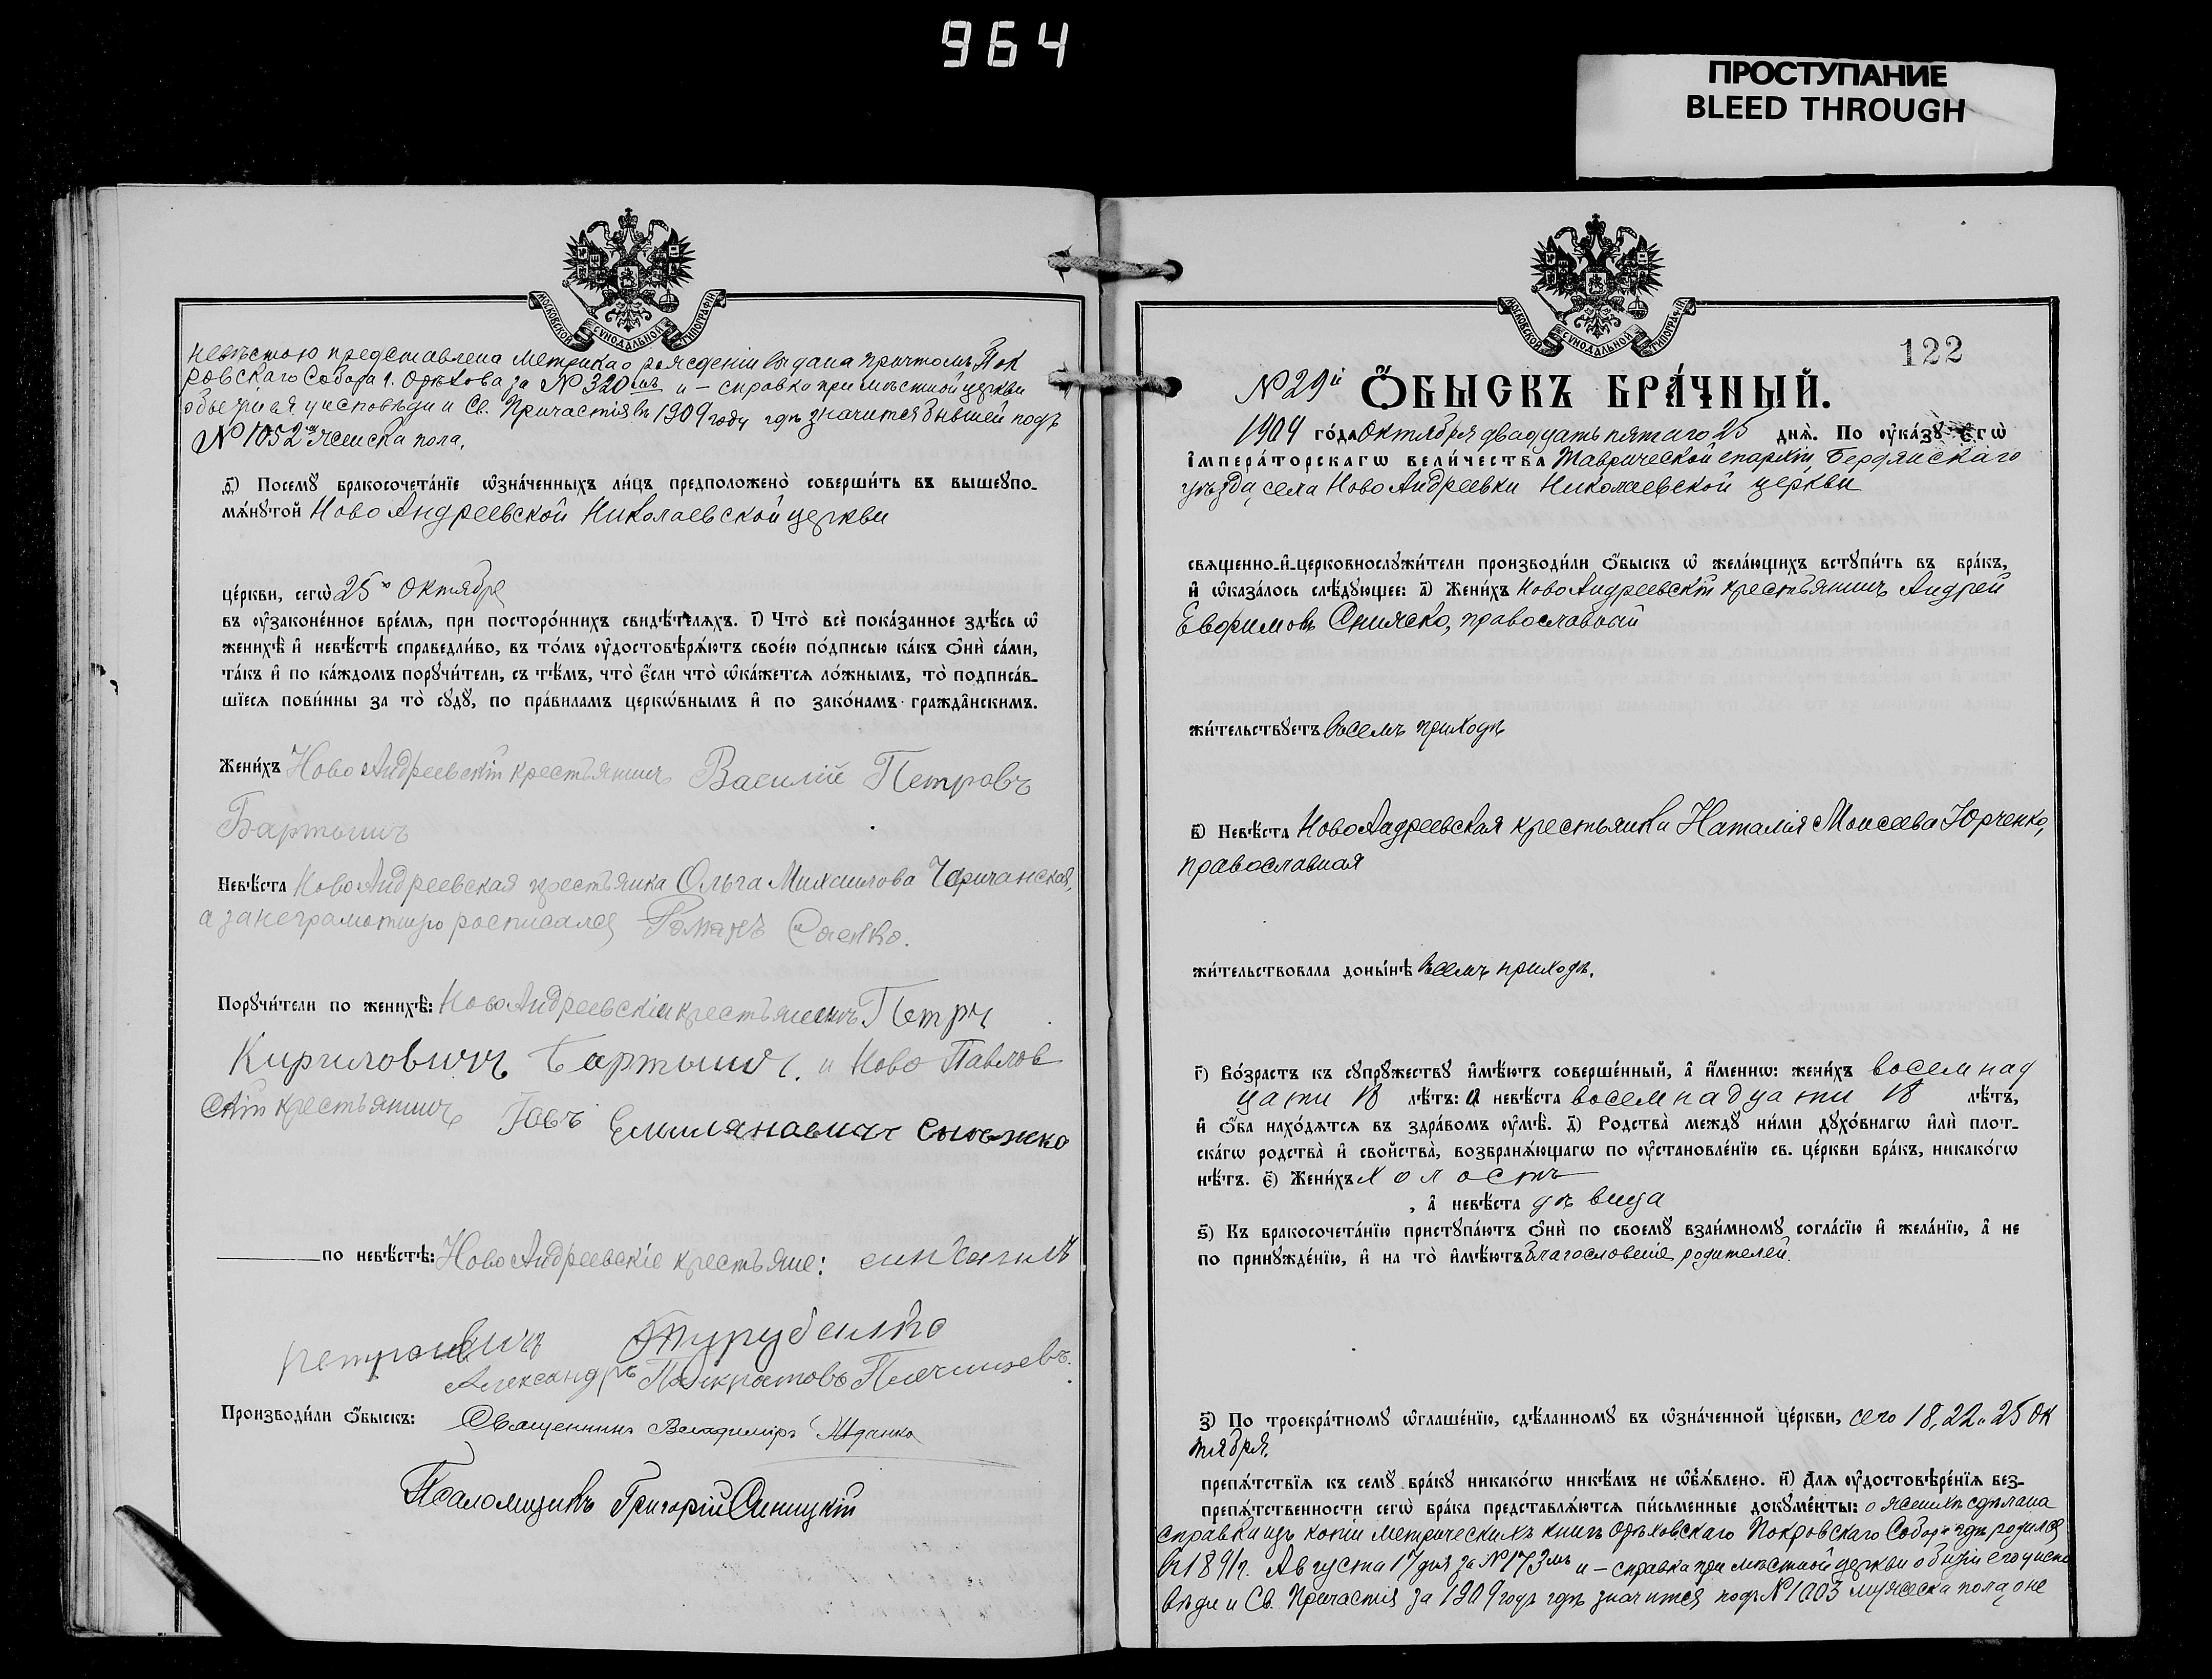 964
ПРОСТУПАНИЕ
BLEED THROUGH
МОСКОВСКОЙ СѴНОДАЛЬНОЙ ТИПОГРАФІИ
невѣстою представлена метрика о рожденіи выдана причтомъ Пок
ровскаго Собора г. Орѣхова за № 320мъ и – справка при мѣстной церкви
о бытіи ея у исповѣди и Св. Причастія въ 1909 году гдѣ значится бывшей подъ
№ 1052 женска пола.
д҃) Посемꙋ бракосочета́нїе ѡ҆зна́ченныхъ ли́цъ предположено̀ соверши́ть въ вышеꙋпо-
мѧ́нꙋтой Ново Андреевской Николаевской церкви
це́ркви, сегѡ̀ 25го Октября
въ ᲂу҆зако́ненное вре́мѧ, при посторо́ннихъ свидѣ́телѧхъ. г҃) Что̀ всѐ пока́занное здѣ́сь ѡ҆
женихѣ̀ и҆ невѣ́стѣ справедли́во, въ то́мъ ᲂу҆достовѣрѧ́ютъ свое́ю по́дписью ка́къ ѻ҆нѝ са́ми,
та́къ и҆ по ка́ждомъ порꙋчи́тели, съ тѣ́мъ, что̀ є҆́сли что̀ ѡ҆ка́жетсѧ ло́жнымъ, то̀ подписа́в-
шїесѧ пови́нны за то̀ сꙋдꙋ̀, по пра́виламъ церкѡ́внымъ и҆ по зако́намъ гражда̑нскимъ.
Жени́хъ Ново Андреевскій крестьянинъ Василій Петровъ
Бартышъ
Невѣ́ста Ново Андреевская крестьянка Ольга Михаилова Чаричанская,
а за неграмотную росписался Романъ Саенко.
Порꙋчи́тели по женихѣ̀: Ново Андреевскій крестьянинъ Петръ
Кириловичъ Бартышъ. и Ново Павлов
скій крестьянинъ Іовъ Емиляновичъ
по невѣ́стѣ: Ново Андреевскіе крестьяне:
Александръ Панкратовъ
Производи́ли ѻ҆́быскъ: Священникъ Владиміръ Жданко
Псаломщикъ Григорій Синицкій
МОСКОВСКОЙ СѴНОДАЛЬНОЙ ТИПОГРАФІИ
122
№ 29й ѺБЫСКЪ БРА́ЧНЫЙ.
1909 го́да Октября двадцать пятаго 25 днѧ̀. По ᲂу҆ка́зꙋ Є҆гѡ̀
І҆мпера́торскагѡ вели́чества Таврической епархіи, Бердянскаго
уѣзда, села Ново Андреевки Николаевской церкви
свѧщенно-и҆-церковнослꙋжи́тели производи́ли ѻ҆́быскъ ѡ҆ жела́ющихъ встꙋпи́ть въ бра́къ,
и҆ ѡ҆каза́лось слѣ́дꙋющее: а҃) Жени́хъ Ново Андреевскій крестьянинъ Андрей
Евфимовъ Снижко, православный
жи́тельствꙋетъ въ семъ приходѣ
в҃) Невѣ́ста Ново Андреевская крестьянка Наталія Моисеева Юрченко,
православная
жи́тельствовала доны́нѣ въ семъ приходѣ.
г҃) Во́зрастъ къ сꙋпрꙋ́жествꙋ и҆мѣ́ютъ соверше́нный, а҆ и҆́меннѡ: жени́хъ восемнад
цати 18 лѣ́тъ: а҆ невѣ́ста восемнадцати 18 лѣ́тъ,
и҆ ѻ҆́ба нахо́дѧтсѧ въ здра́вомъ ᲂу҆мѣ̀. д҃) Родства̀ междꙋ ни́ми дꙋхо́внагѡ и҆лѝ плот-
ска́гѡ родства̀ и҆ свойства̀, возбранѧ́ющагѡ по ᲂу҆становле́нїю св. це́ркви бра́къ, никако́гѡ
нѣ́тъ. є҃) Жени́хъ холостъ
, а҆ невѣ́ста дѣвица
ѕ҃) Къ бракосочета́нїю пристꙋпа́ютъ ѻ҆нѝ по своемꙋ̀ взаи́мномꙋ согла́сїю и҆ жела́нїю, а҆ не
по принꙋжде́нїю, и҆ на то̀ и҆мѣ́ютъ благословеніе родителей.
з҃) По троекра́тномꙋ ѡ҆глаше́нїю, сдѣ́ланномꙋ въ ѡ҆зна́ченной це́ркви, сего 18, 22 и 25 Ок
тября.
препѧ́тствїѧ къ семꙋ̀ бра́кꙋ никако́гѡ никѣ́мъ не ѡ҆б̾ѧ́влено. и҃) Длѧ ᲂу҆достовѣре́нїѧ без-
препѧ́тственности сегѡ̀ бра́ка представлѧ́ютсѧ пи́сьменные докꙋме́нты: о женихѣ сдѣлана
справка изъ копіи метрическихъ книгъ Орѣховскаго Покровскаго Собора гдѣ родился
въ 1891 г. Августа 17 дня за № 173мъ и – справка при мѣстной церкви о бытіи его у испо
вѣди и Св. Причастія за 1909 годъ гдѣ значится подъ № 1003 мужеска пола, о не